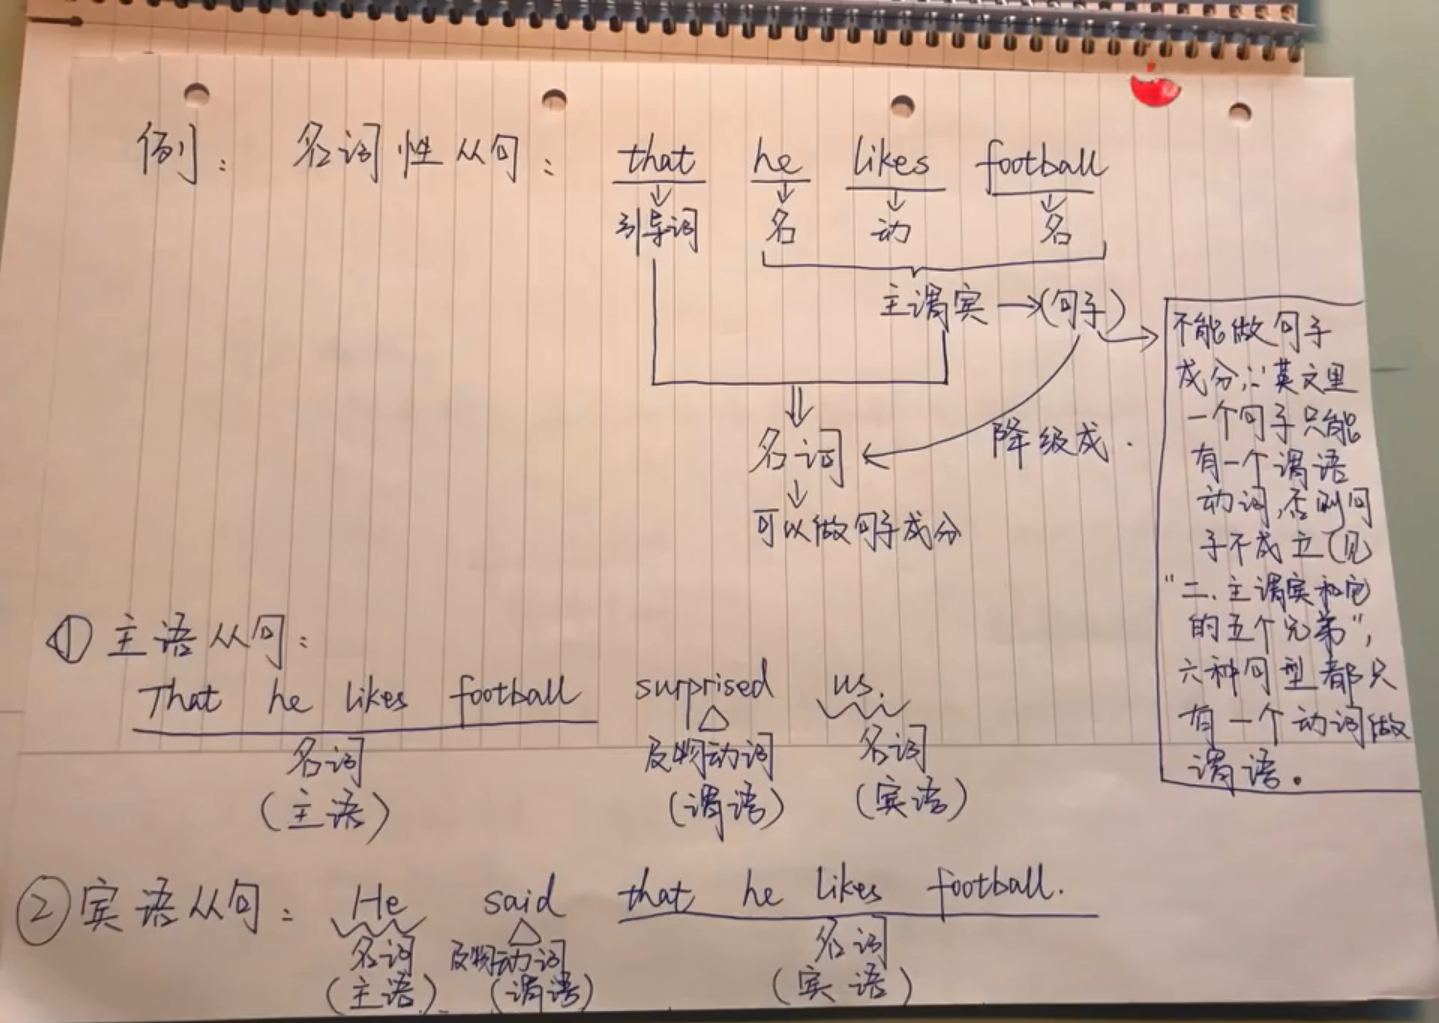 例： 名词性从句： that he likes football
引导词 名 动 名
主谓宾 → (句子)
名词
降级成
可以做句子成分
不能做句子
成分,∵英文里
一个句子只能
有一个谓语
动词,否则句
子不成立(见
“二、主谓宾和它
的五个兄弟”,
六种句型都只
有一个动词做
谓语。
① 主语从句：
That he likes football surprised us.
名词 及物动词 名词
(主语) (谓语) (宾语)
② 宾语从句： He said that he likes football.
名词 及物动词 名词
(主语) (谓语) (宾语)